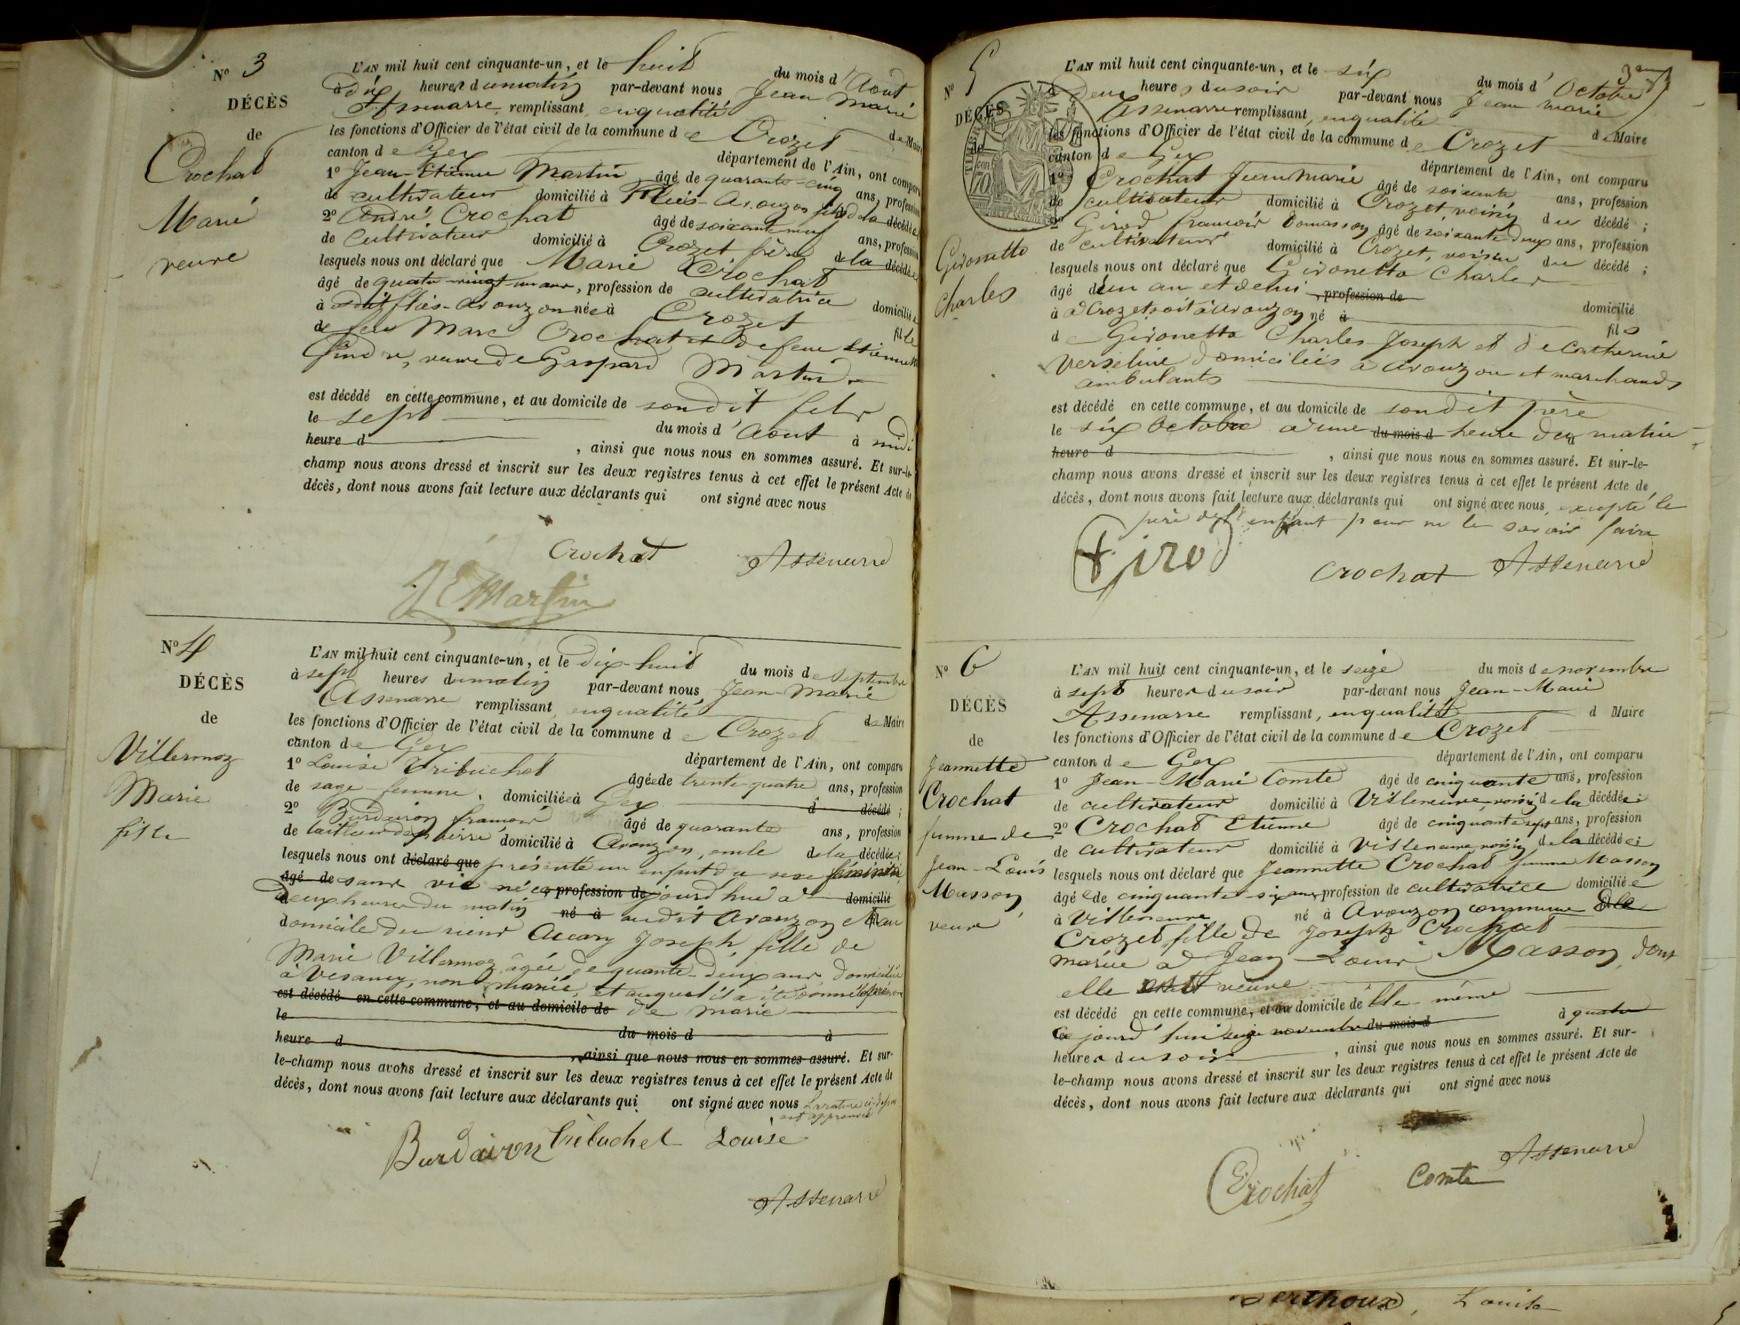 N° 3
DÉCÈS
de
Crochat
Marie
veuve
L'AN mil huit cent cinquante-un, et le huit du mois d'Aout
à dix heures du matin par-devant nous Jean Marie
Assenarre remplissant, en qualité de Maire
les fonctions d'Officier de l'état civil de la commune de Crozet
canton de Gex département de l'Ain, ont comparu
1° Jean-Etienne Martin âgé de quarante-cinq ans, profession
de cultivateur domicilié à Flies-Avouzon fils de la décédée
2° André Crochat âgé de soixante neuf ans, profession
de cultivateur domicilié à Crozet frère de la décédée
lesquels nous ont déclaré que Marie Crochat
âgé de quatre-vingt un ans, profession de cultivatrice domicilié
à Avouzon née à Crozet fille
de feu Marc Crochat et de feue Etiennette
veuve de Gaspard Martin
est décédé en cette commune, et au domicile de son dit fils
le sept du mois d'Aout à midi
heure d , ainsi que nous nous en sommes assuré. Et sur-le-
champ nous avons dressé et inscrit sur les deux registres tenus à cet effet le présent Acte de
décès, dont nous avons fait lecture aux déclarants qui ont signé avec nous
Crochat Assenarre
J E Martin
N° 4
DÉCÈS
de
Villermoz
Marie
fille
L'AN mil huit cent cinquante-un, et le dix-huit du mois de septembre
à sept heures du matin par-devant nous Jean-Marie
Assenarre remplissant, en qualité de Maire
les fonctions d'Officier de l'état civil de la commune de Crozet
canton de Gex département de l'Ain, ont comparu
1° Louise Trébuchet âgée de trente-quatre ans, profession
de sage-femme, domiciliée à Gex d décédé ;
2° Burdairon françois âgé de quarante ans, profession
de tailleur de pierre domicilié à Avouzon, oncle de la décédée ;
lesquels nous ont déclaré que présenté un enfant du sexe féminin
âgé de sans vie née profession de jourd'hui à domicilié
deux heures du matin né à audit Avouzon et au
domicile du sieur Joseph fille de
Marie Villermoz, âgée de deux ans, domiciliée
à Vesancy, non mariée, et auquel il a été donné le prénom
est décédé en cette commune, et au domicile de de Marie
le du mois d à
heure d , ainsi que nous nous en sommes assuré. Et sur-
le-champ nous avons dressé et inscrit sur les deux registres tenus à cet effet le présent Acte de
décès, dont nous avons fait lecture aux déclarants qui ont signé avec nous
Burdairon Trébuchet Louise
Assenarre
N° 5
DÉCÈS
de
Gironetto
Charles
L'AN mil huit cent cinquante-un, et le six du mois d'Octobre
à Deux heures du soir par-devant nous Jean marie
Assenarre remplissant, en qualité de Maire
les fonctions d'Officier de l'état civil de la commune de Crozet
canton de Gex département de l'Ain, ont comparu
1° Crochat Jean Marie âgé de soixante ans, profession
de cultivateur domicilié à Crozet voisin du décédé ;
2° Girod françois âgé de soixante deux ans, profession
de cultivateur domicilié à Crozet, voisin du décédé ;
lesquels nous ont déclaré que Gironetto Charles
âgé d'un an et demi , profession de domicilié
à Avouzon né à fils
de Gironetto Charles Joseph et de Catherine
domiciliés à Avouzon et marchands
ambulants
est décédé en cette commune, et au domicile de son dit père
le six Octobre à une du mois d heure du matin
heure d , ainsi que nous nous en sommes assuré. Et sur-le-
champ nous avons dressé et inscrit sur les deux registres tenus à cet effet le présent Acte de
décès, dont nous avons fait lecture aux déclarants qui ont signé avec nous, excepté le
père de l'enfant pour ne le savoir faire
Girod
Crochat Assenarre
N° 6
DÉCÈS
de
Jeannette
Crochat
femme de
Jean-Louis
Masson
veuve
L'AN mil huit cent cinquante-un, et le seize du mois de novembre
à sept heures du soir par-devant nous Jean-Marie
Assenarre remplissant, en qualité d Maire
les fonctions d'Officier de l'état civil de la commune de Crozet
canton de Gex département de l'Ain, ont comparu
1° Jean-Marie Comte âgé de cinquante ans, profession
de cultivateur domicilié à Villeneuve voisin de la décédée ;
2° Crochat Etienne âgé de cinquante sept ans, profession
de cultivateur domicilié à Villeneuve voisin de la décédée ;
lesquels nous ont déclaré que Jeannette Crochat femme Masson
âgée de cinquante-six ans profession de cultivatrice domiciliée
à Villeneuve né à Avouzon commune de
Crozet fille de Joseph Crochat
mariée à Jean-Louis Masson, dont
elle est veuve
est décédé en cette commune, et au domicile de elle-même
Ce jourd'hui seize novembre du mois d à quatre
heures du soir , ainsi que nous nous en sommes assuré. Et sur-
le-champ nous avons dressé et inscrit sur les deux registres tenus à cet effet le présent Acte de
décès, dont nous avons fait lecture aux déclarants qui ont signé avec nous
Assenarre
Crochat Comte
Berthoux, Louise